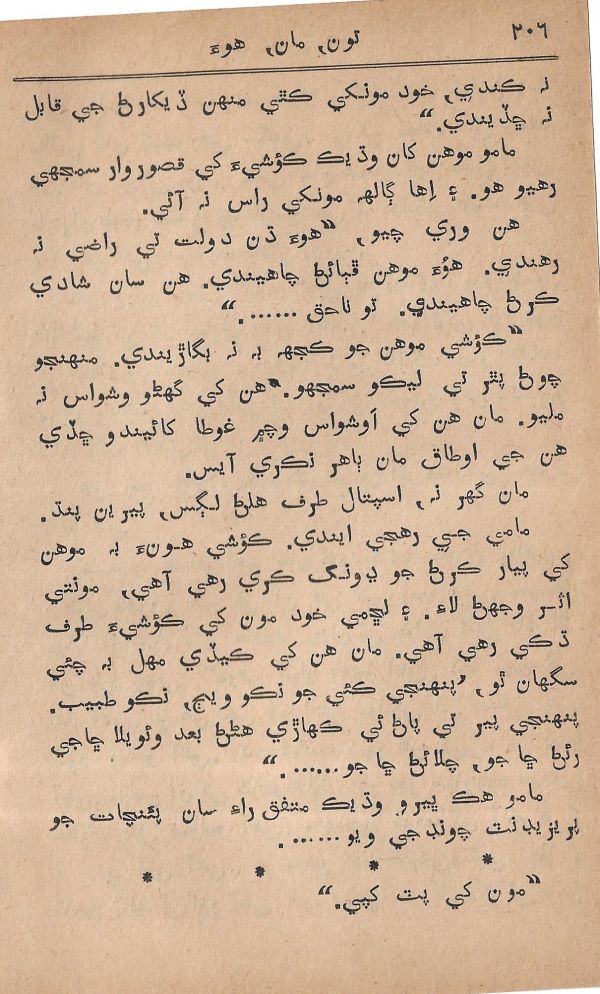 ۲۰۶
تون، مان، هوءَ
نہ ڪندي، خود مونکي ڪٿي منهن ڏيکارڻ جي قابل
نہ ڇڏيندي.“
مامو موهن کان وڌيڪ ڪؤشيءَ کي قصوروار سمجهي
رهيو هو. ۽ اِها ڳالهہ مونکي راس نہ آئي.
هن وري چيو، ”هوءَ ڌن دولت تي راضي نہ
رهندي. هوُءَ موهن ڦٻائڻ چاهيندي. هن سان شادي
ڪرڻ چاهيندي. تو ناحق .......“
”ڪؤشي موهن جو ڪجهہ بہ نہ بگاڙيندي. منهنجو
چوڻ پٿر تي ليڪو سمجهو.“ هن کي گهڻو وشواس نہ
مليو. مان هن کي اَوشواس وچ۾ غوطا کائيندو ڇڏي
هن جي اوطاق مان ٻاهر نڪري آيس.
مان گهر نہ، اسپتال طرف هلڻ لڳس، پيرين پنڌ.
مامي جي رهجي ايندي. ڪؤشي هونءَ بہ موهن
کي پيار ڪرڻ جو ڍونگ ڪري رهي آهي، مونتي
اثر وجهڻ لاءِ. ۽ لڇمي خود مون کي ڪؤشيءَ طرف
ڌڪي رهي آهي. مان هن کي ڪيڏي مهل بہ چئي
سگهان ٿو، ’پنهنجي ڪئي جو نڪو ويڄ، نڪو طبيب.
پنهنجي پير تي پاڻ ئي ڪهاڙي هڻڻ بعد وئويلا ڇاجي
رئڻ ڇا جو، چلائڻ ڇا جو.......“
مامو هڪ ڀيرو وڌيڪ متفق راءِ سان پئنچات جو
پريزيڊنٽ چونڊجي ويو.......
* * * *
”مون کي پٽ کپي.“